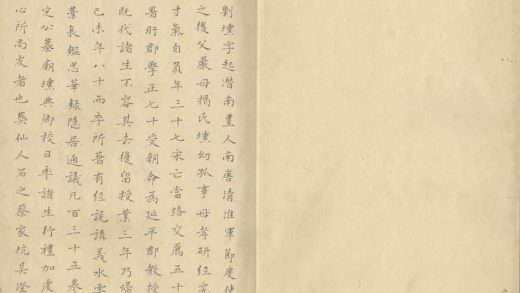 劉壎字起潛南豐人南唐清淮軍節度使
之後父嚴母揭氏壎幼孤事母孝研經究
才氣自負年三十七宋亡當路交薦五十
署旴郡學正七十受朝命為延平郡教授
既代諸生不容其去復留授業三年乃歸
已未年八十而卒所著有經說講義水雲
業衰鑑思華錄隱居通議凡百三十五卷
定公墓廟壎典鄉校日率諸生行禮加虔
心所尚友者也葬仙人石之蔡家坑吳澄